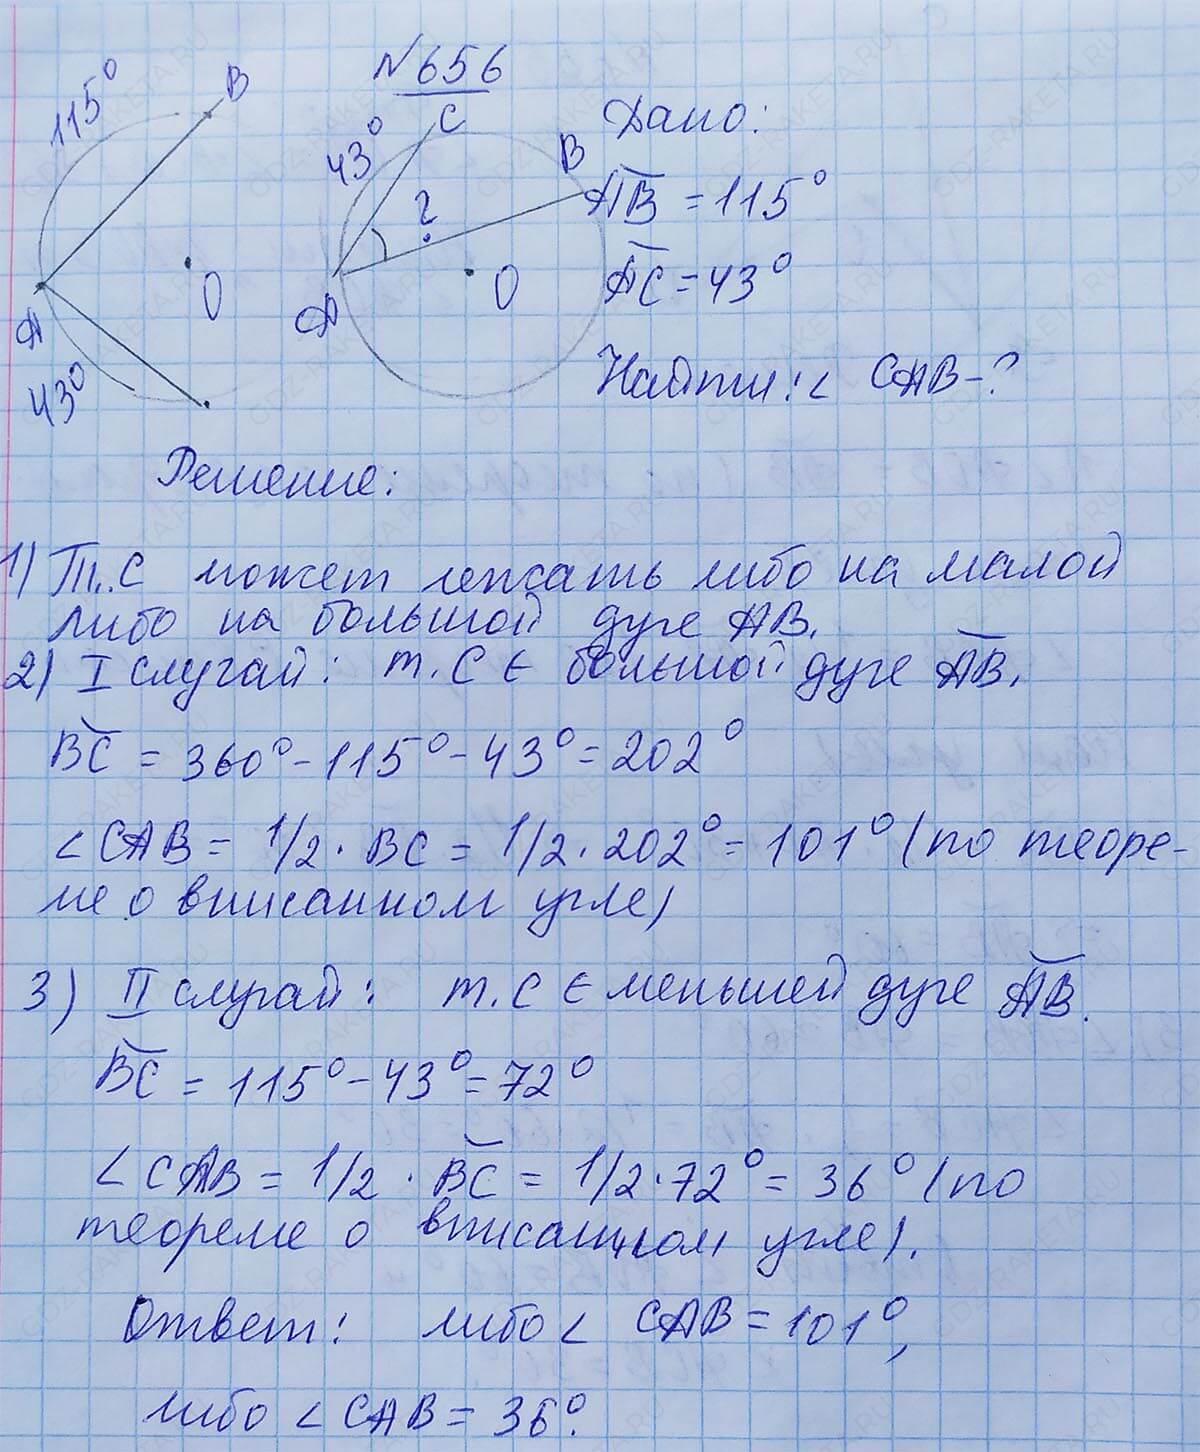 №656
115° B
C
43°
B
?
O
A
43°
A
O
Дано:
AB = 115°
AC = 43°
Найти: < CAB-?
Решение:
1) Т.С может лежать либо на малой
либо на большой дуге AB.
2) I случай: т.C ∈ большой дуге AB.
BC = 360° - 115° - 43° = 202°
<CAB = 1/2 · BC = 1/2 · 202° = 101° (по теоре-
ме о вписанном угле)
3) II случай: т.C ∈ меньшей дуге AB.
BC = 115° - 43° = 72°
<CAB = 1/2 · BC = 1/2 · 72° = 36° (по
теореме о вписанном угле).
Ответ: либо < CAB = 101°,
либо < CAB = 36°.